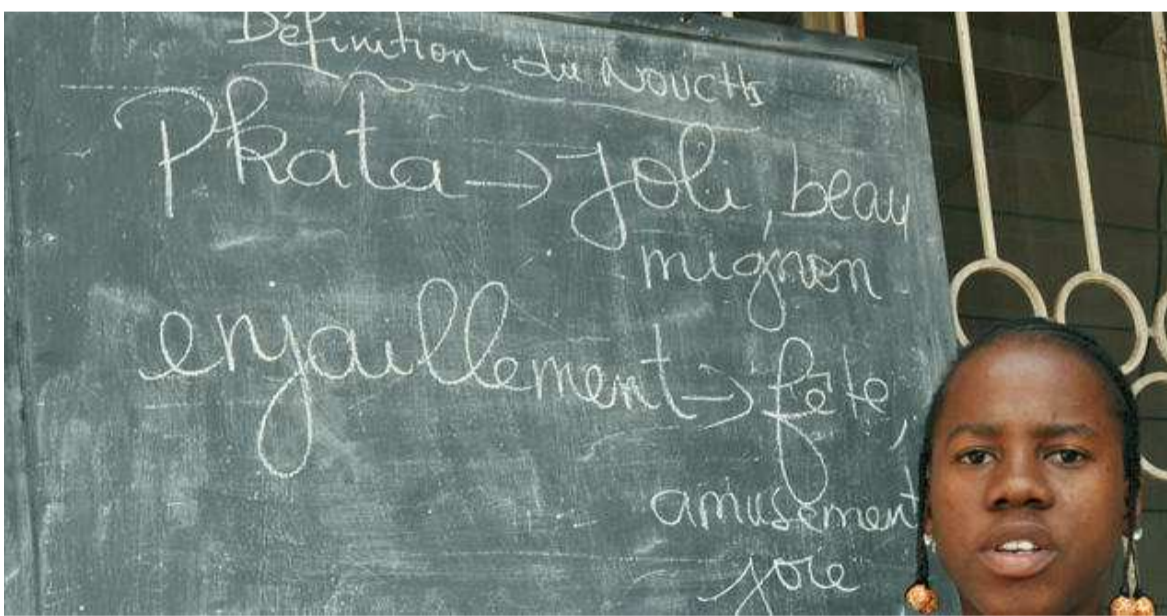 Définition du Nouchi
Pkata -> Joli, beau
mignon
enjaillement -> fête,
amusement
joie